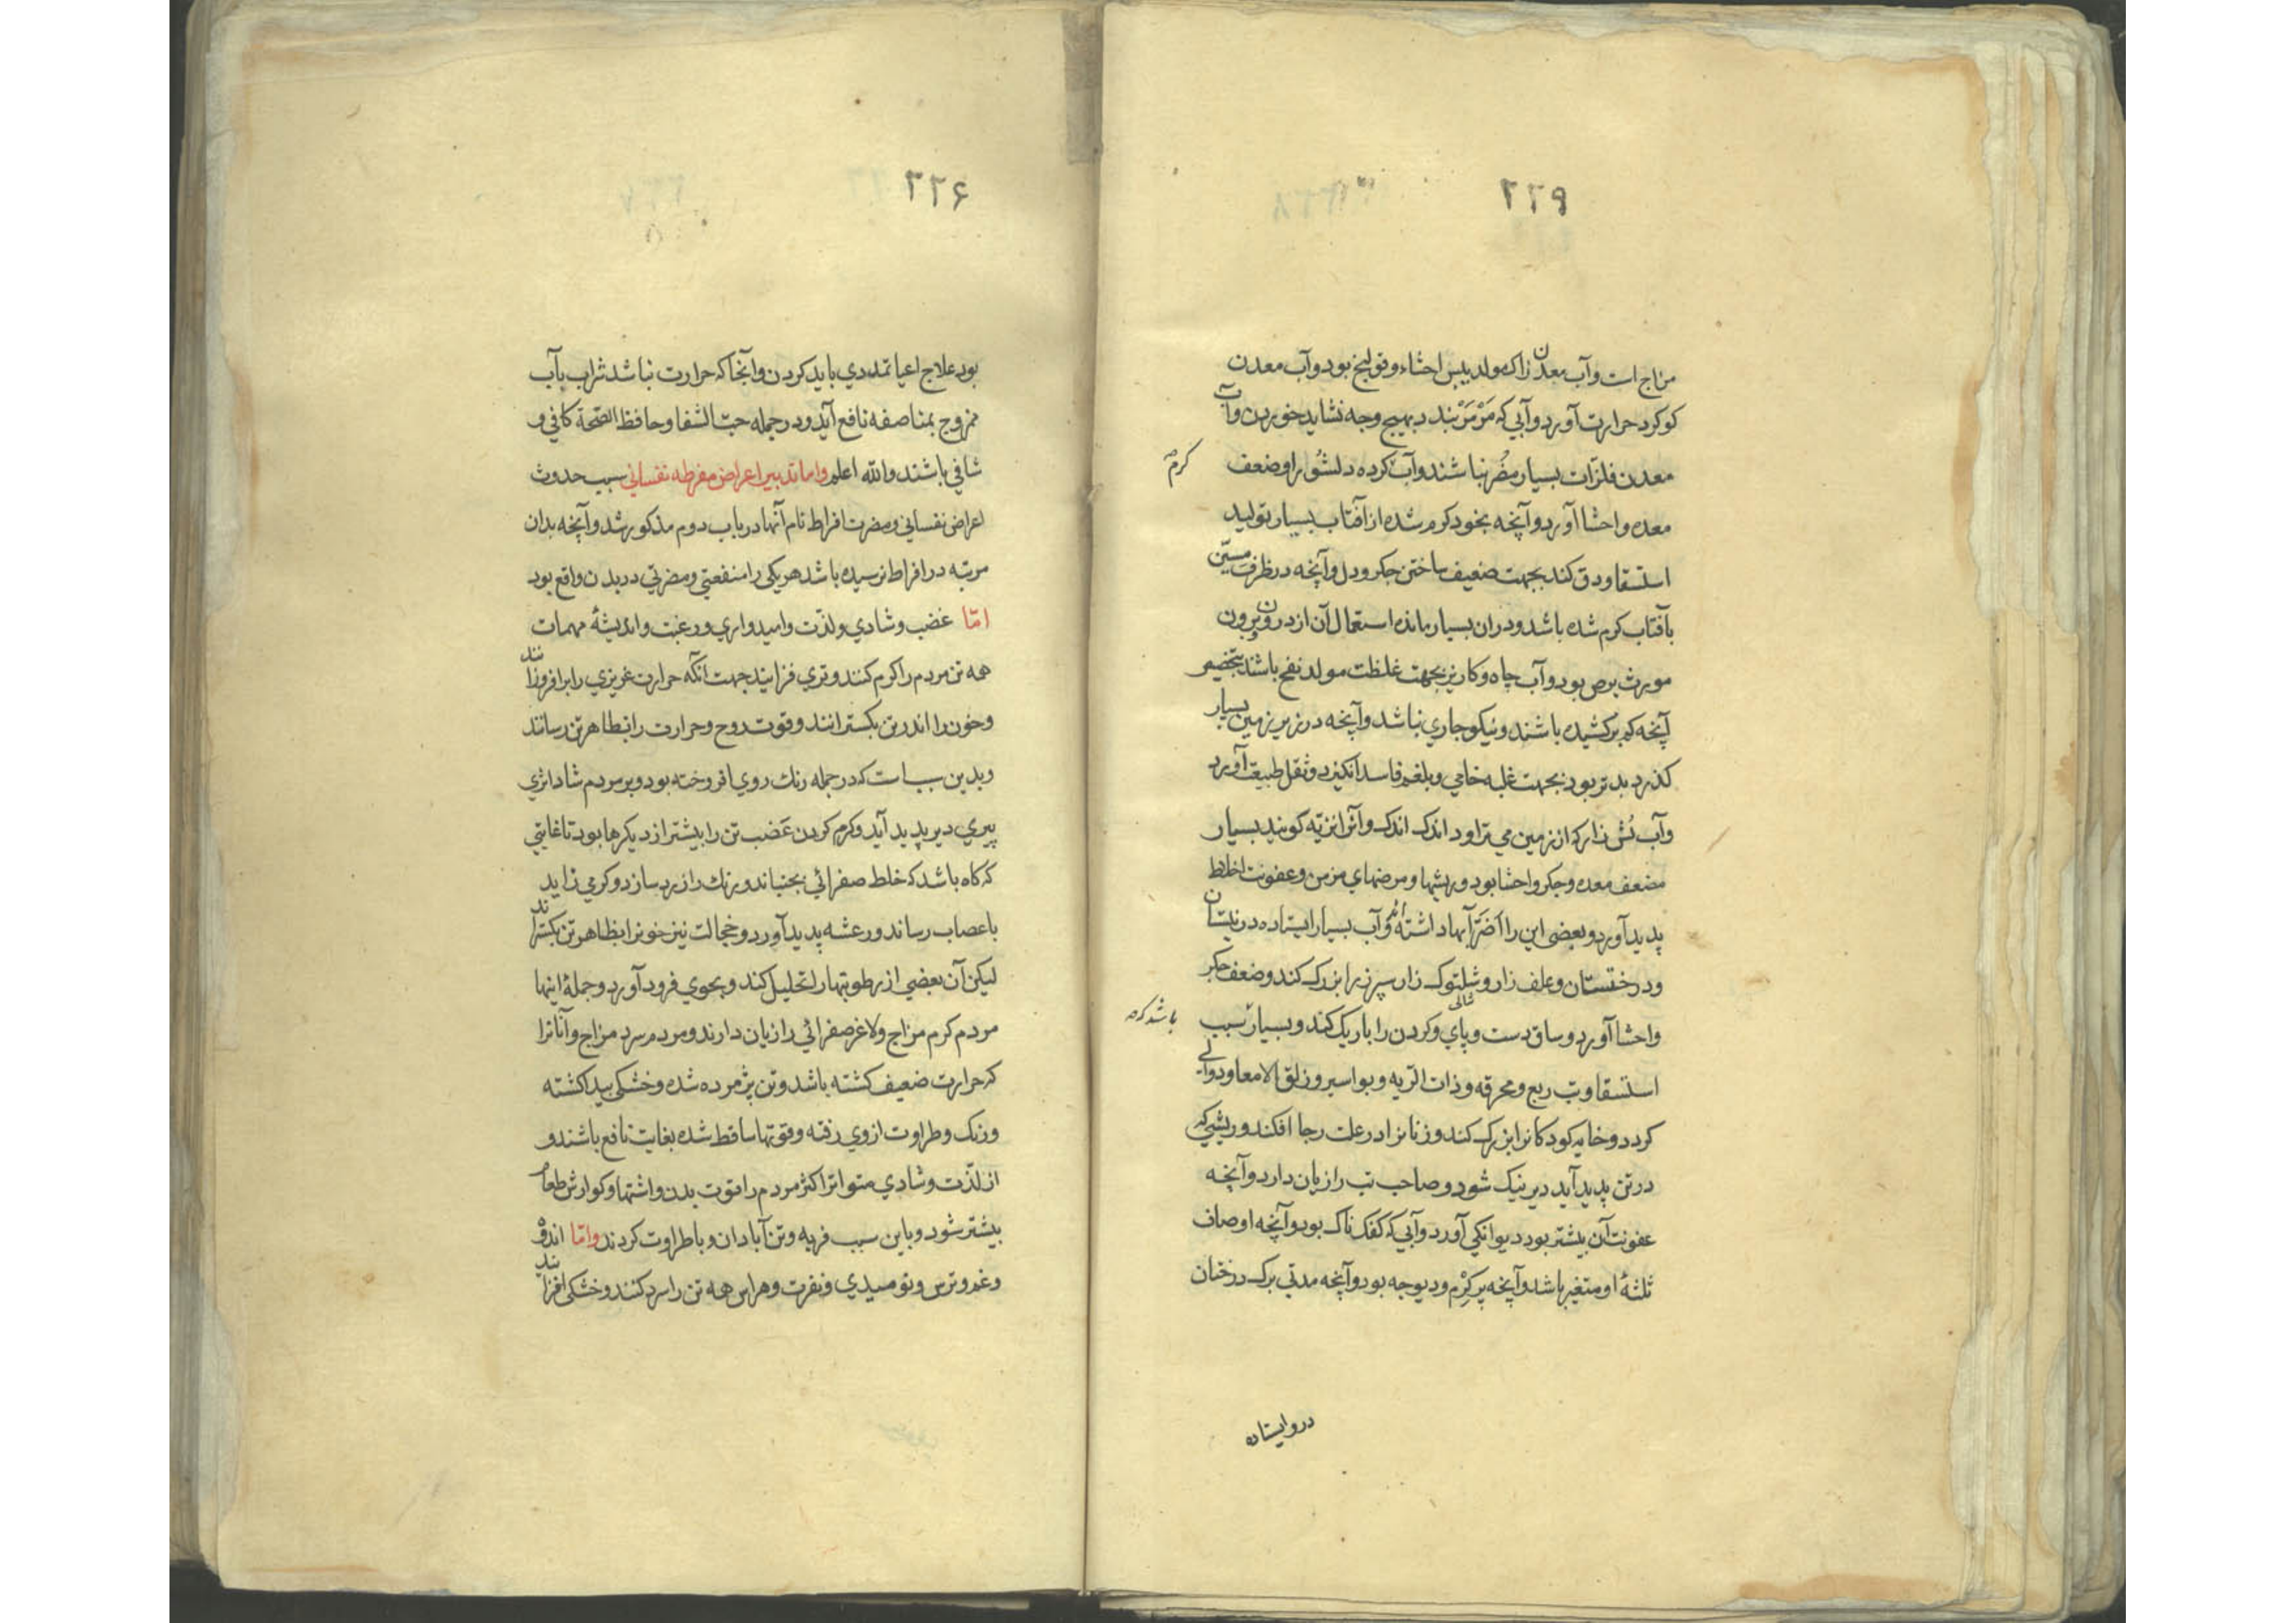 ۲۲۹
مزاج است و آب معدن زاک مولد یبس احشاء و قولنج بود و آب معدن
کوکرد حرارت آورد و آبی که مَرْمَرْ بندد بهیچ وجه نشاید خوردن و آب
معدن فلزّات بسیار مضُر نباشند و آب کرده دلشُو را و ضعف
کرم
معده و احشا آورد و آنچه بخود کرم شده از آفتاب بسیار تولید
استسقا و دق کند بجهت ضعیف ساختن جکر و دل و آنچه در ظرف مسین
بآفتاب کرم شده باشد و دران بسیار مانده استعمال آن از درون و برون
مورث برص بود و آب چاه و کاریز بجهت غلظت مولد نفخ باشند بتخصیص
آنچه کم برکشیده باشند و نیکو جاری نباشد و آنچه در زیر زمین بسیار
کذرد بدتر بود بجهت غلبه خامی و بلغم فاسد انکیزد و ثقل طبیعت آورد
و آب نُش زار که از زمین می تراود اندک اندک و آنرا نزیّه کویند بسیار
مضعف معده و جکر و احشا بود و ریشها و مرضهای مزمن و عفونت اخلاط
پدید آورد و بعضی این را اَضَرّ آبها داشته اند و آب بسیار ایستاده در نیستان
و درختستان و علف زار و شلتوک زار سپرز را بزرک کند و ضعف جکر
و احشا آورد و ساق دست و پای و کردن را باریک کند و بسیار سبب
باشد که
استسقا و تب ربع و محرقه و ذات الریه و بواسیر و زلق الامعا و دوالی
کردد و خایه کودکانرا بزرک کند و زنانرا در علت رجا افکند و ریشی که
در تن پدید آید دیر نیک شود و صاحب تب را زیان دارد و آنچه
عفونت آن بیشتر بود دیوانکی آورد و آبی که کفک ناک بود و آنچه اوصاف
ثلثهٔ او متغیر باشد و آنچه پر کِرْم و دیوچه بود و آنچه مدتی برک درختان
درو ایستاده
۲۲۶
بود علاج اعیا تمددی باید کردن و آنجا که حرارت نباشد شراب بآب
ممزوج بمناصفه نافع آید و در جمله حبّ الشفا و حافظ الصّحة کافی و
شافی باشند والله اعلم و اما تدبیر اعراض مفرطه نفسانی سبب حدوث
اعراض نفسانی و مضرت افراط تام آنها در باب دوم مذکور شد و آنچه بدان
مرتبه در افراط نرسیده باشد هریکی را منفعتی و مضرتی در بدن واقع بود
امّا غضب و شادی و لذّت و امیدواری و رغبت و اندیشهٔ مهمات
همه تن مردم را کرم کنند و تری فزایند جهت آنکه حرارت غریزی را برافروزانند
و خون را اندر تن بکسترانند و قوت روح و حرارت را بظاهر تن رسانند
و بدین سبب است که در جمله رنک روی افروخته بود و بر مردم شاد اثری
پیری دیر پدید آید و کرم کردن غضب تن را بیشتر از دیکرها بود تا غایتی
که کاه باشد که خلط صفرائی بجنباند و رنک را زرد سازد و کرمی زاید
باعصاب رساند و رعشه پدید آورد و خجالت نیز خونرا بظاهر تن بکستراند
لیکن آن بعضی از رطوبتها را تحلیل کند و بخوی فرود آورد و جملهٔ اینها
مردم کرم مزاج و لاغر صفرائی را زیان دارند و مردم سرد مزاج و آنانرا
که حرارت ضعیف کشته باشد و تن پژمرده شده و خشکی پیدا کشته
و رنک و طراوت از وی رفته و قوتها ساقط شده بغایت نافع باشند و
از لذّت و شادی متواتر اکثر مردم را قوت بدن و اشتها و کوارش طعام
بیشتر شود و باین سبب فربه و تن آبادان و با طراوت کردند و امّا اندوه
و غم و ترس و نومیدی و نفرت و هراس همه تن را سرد کنند و خشکی افزایند